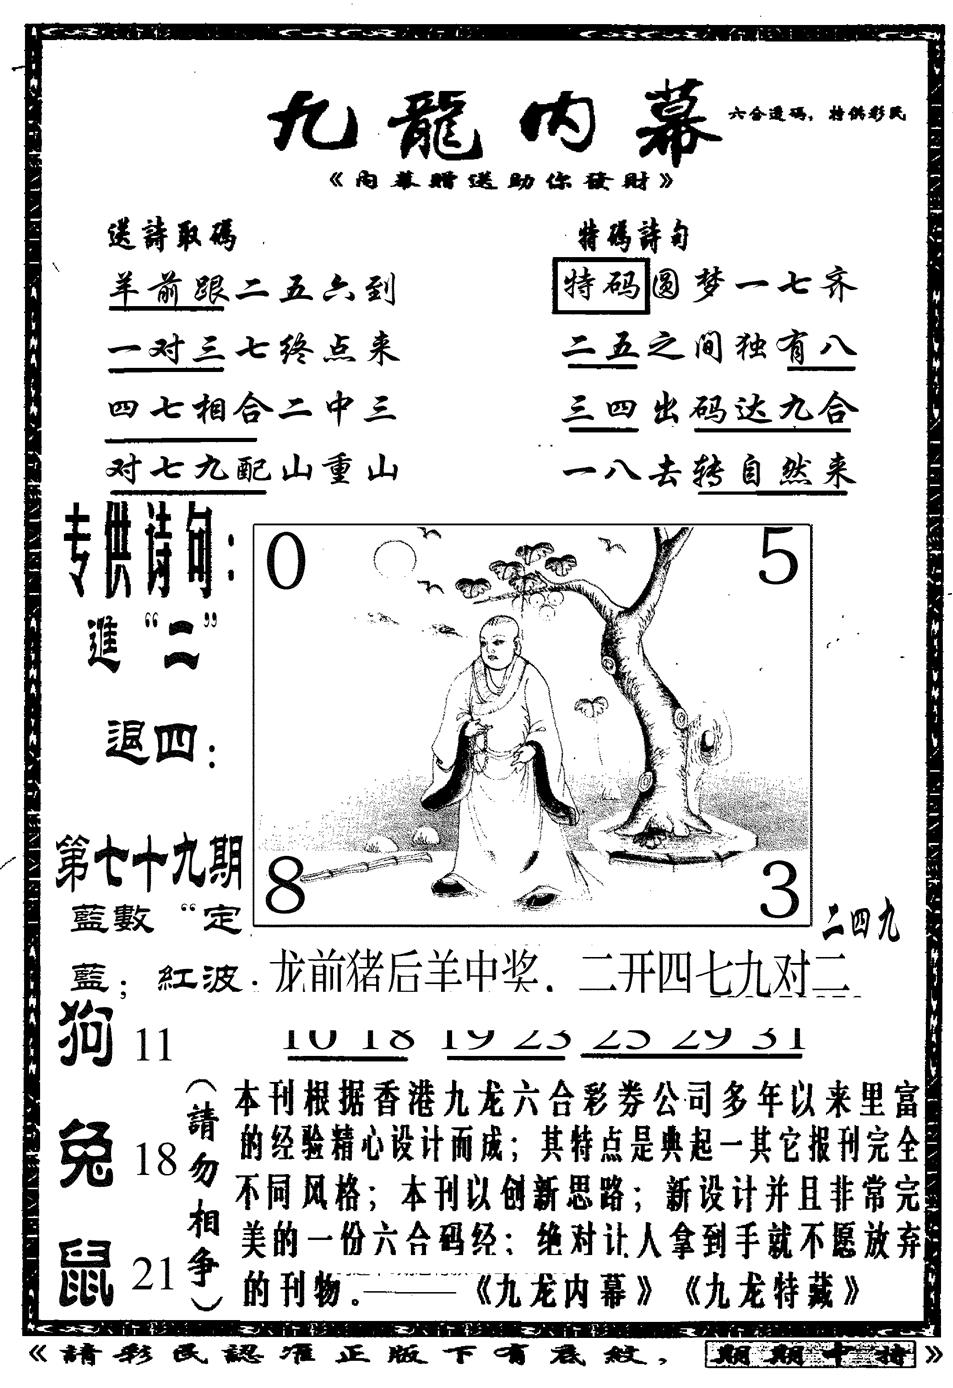 九龍内幕
六合透码，特供彩民
《内幕贈送助你發財》
送詩取碼
羊前跟二五六到
一对三七终点来
四七相合二中三
对七九配山重山
特碼詩句
特码圆梦一七齐
二五之间独有八
三四出码达九合
一八去转自然来
专供诗句：
進“二”
退四：
0 5
8 3
二四九
第七十九期
藍數“定
藍；紅波.
龙前猪后羊中奖．二开四七九对二
狗 11
兔 18
鼠 21
10 18 19 23 25 29 31
（請勿相争）
本刊根据香港九龙六合彩券公司多年以来里富
的经验精心设计而成；其特点是典起一其它报刊完全
不同风格；本刊以创新思路；新设计并且非常完
美的一份六合码经；绝对让人拿到手就不愿放弃
的刊物．——《九龙内幕》《九龙特藏》
《請彩民認准正版下有底紋，期期中特》